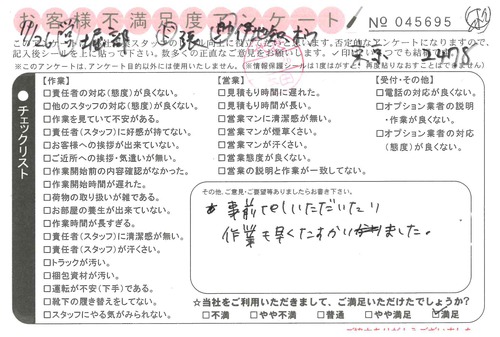 お客様不満足度アンケート
No 045695
7/26
記入後シールを上に貼って下さい。
※このアンケートは、アンケート目的以外には使用いたしません。
チェックリスト
【作業】
□責任者の対応(態度)が良くない。
□他のスタッフの対応(態度)が良くない。
□作業を見ていて不安がある。
□責任者(スタッフ)に好感が持てない。
□お客様への挨拶が出来ていない。
□ご近所への挨拶・気遣いが無い。
□作業開始前の内容確認がなかった。
□作業開始時間が遅れた。
□荷物の取り扱いが雑である。
□お部屋の養生が出来ていない。
□作業時間が長すぎる。
□責任者(スタッフ)に清潔感が無い。
□責任者(スタッフ)が汗くさい。
□トラックが汚い。
□梱包資材が汚い。
□運転が不安(下手)である。
□靴下の履き替えをしてない。
□スタッフにやる気がみられない。
【営業】
□見積もり時間に遅れた。
□見積もり時間が長い。
□営業マンに清潔感が無い。
□営業マンが煙草くさい。
□営業マンが汗くさい。
□営業態度が良くない。
□営業の説明と作業が一致してない。
【受付・その他】
□電話の対応が良くない。
□オプション業者の説明
・作業が良くない。
□オプション業者の対応
(態度)が良くない。
その他、ご意見・ご要望等ありましたらお書き下さい。
事前にtelいただいたり
作業も早くたすかりました。
☆当社をご利用いただきまして、ご満足いただけたでしょうか?
□不満 □やや不満 □普通 □やや満足 ☑満足